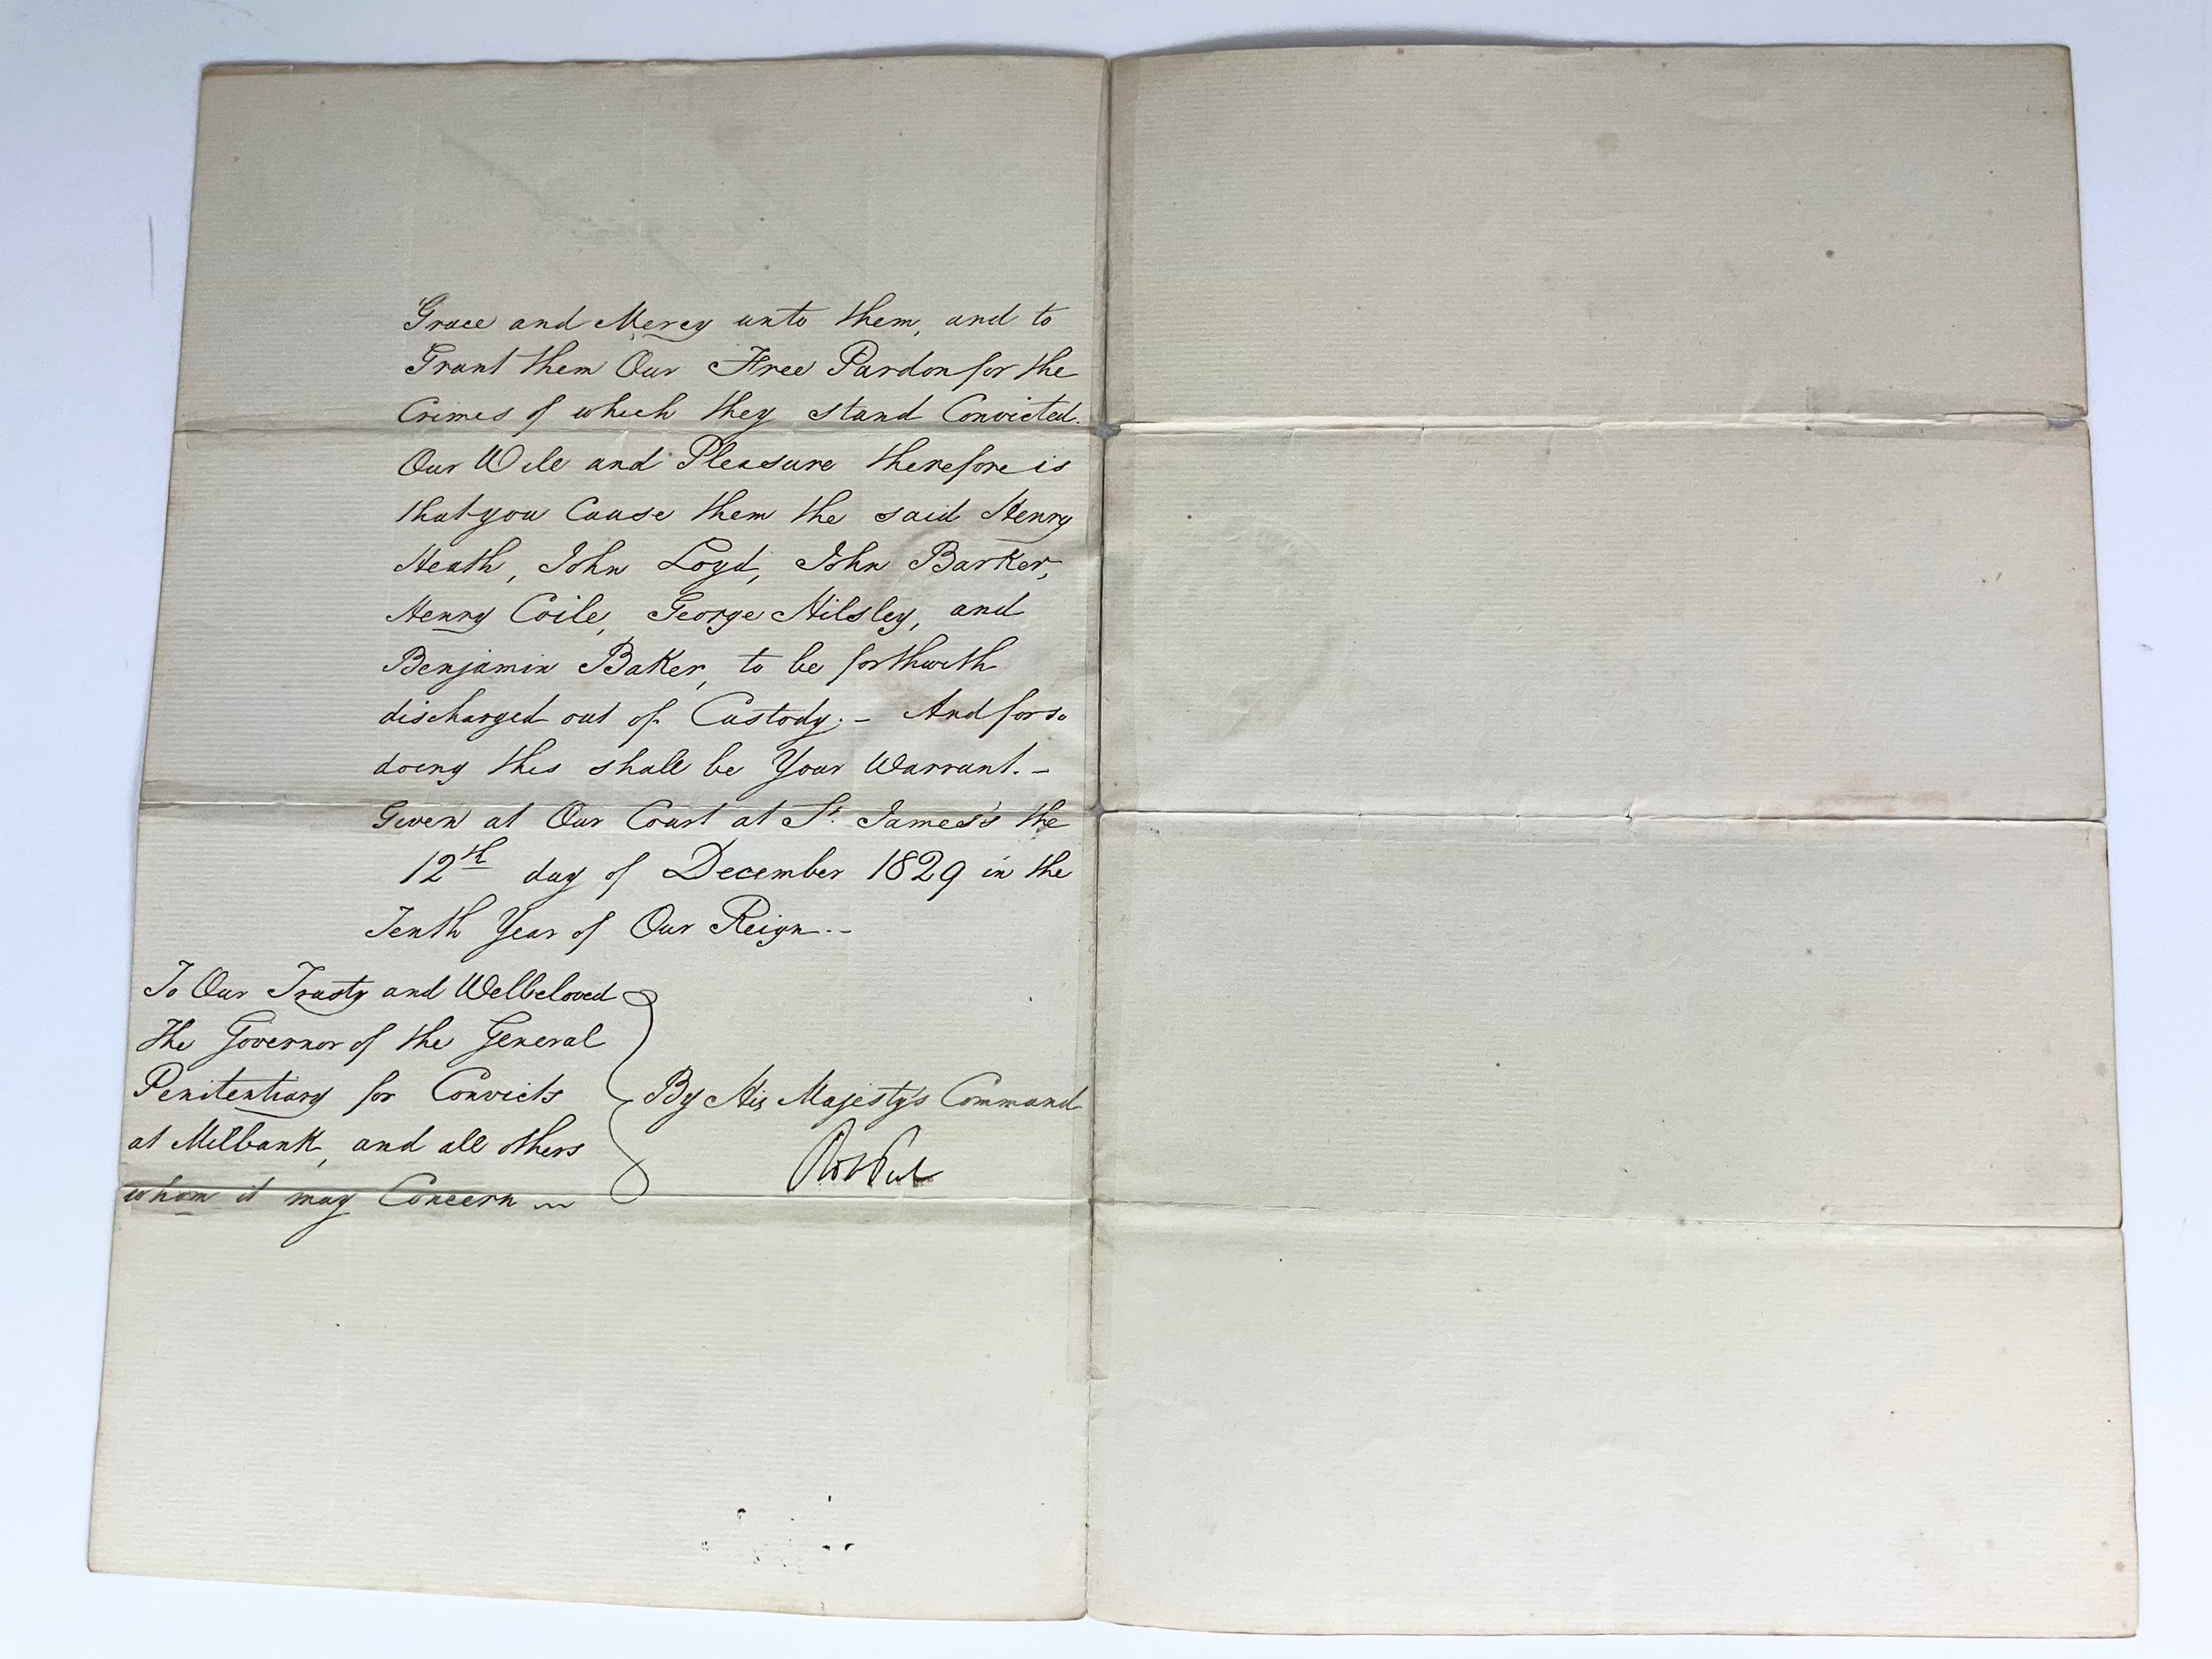 Grace and Mercy unto them, and to
Grant them Our Free Pardon for the
Crimes of which they stand Convicted.
Our Will and Pleasure therefore is
that you Cause them the said Henry
Heath, John Loyd, John Barker,
Henry Coile, George Hilsley, and
Benjamin Baker, to be forthwith
discharged out of Custody; – And for so
doing this shall be Your Warrant. –
Given at Our Court at St. James's the
12th day of December 1829 in the
Tenth Year of Our Reign. –
To Our Trusty and Welbeloved
The Governor of the General
Penitentiary for Convicts
at Milbank, and all others
whom it may Concern
By His Majesty's Command
Rob Peel